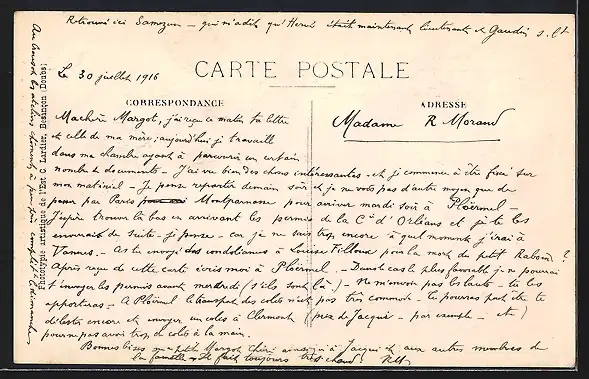 Retrouvé ici Samzun - qui m'a dit qu'Hervé était maintenant lieutenant et Gaudin s. lt
Le 30 juillet 1916
CARTE POSTALE
CORRESPONDANCE
ADRESSE
Madame R Morand
Ma chère Margot, j'ai reçu ce matin ta lettre
et celle de ma mère; aujourd'hui je travaille
dans ma chambre ayant à parcourir un certain
nombre de documents - J'ai vu bien des choses intéressantes et je commence à être fixé sur
mon matériel - Je pense repartir demain soir et je ne vois pas d'autre moyen que de
passer par Paris Montparnasse pour arriver mardi soir à Ploërmel -
J'espère trouver là bas en arrivant les permis de la Cie d'Orléans et je te les
enverrais de suite - je pense - car je ne suis trop encore à quel moment j'irai à
Vannes - As tu envoyé des condoléances à Louise Filloux pour la mort du petit Raboin ?
Après reçu de cette carte écris moi à Ploërmel - Dans le cas le plus favorable je ne pourrai
t'envoyer les permis avant mercredi (s'ils sont là) - Ne m'envoie pas les - tu les
apporteras - A Ploërmel le transport des colis n'est pas très commode - Tu pourras peut être te
délester encore et envoyer un colis à Clermont (près de Jacqui - par exemple - et)
pour ne pas avoir trop de colis à la main.
Bonnes bises ma petite Margot chérie ainsi qu'à Jacqui et aux autres membres de
la famille - Il fait toujours très chaud !
Phototypie artistique de l'Est C. Lardier, Besançon (Doubs)